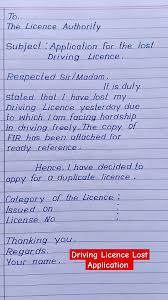 To..
The Licence Authority
Subject : Application for the lost
Driving Licence.
Respected Sir/Madam.
It is duly
stated that I have lost my
Driving Licence yesterday due
to which I am facing hardship
in driving freely. The copy of
FIR has been attached for
ready reference.
Hence. I have decided to
appy for a duplicate licence.
Category of the Licence :
Issued on :
License No :
Thanking you.
Regards.
Your name.
Driving Licence Lost
Application